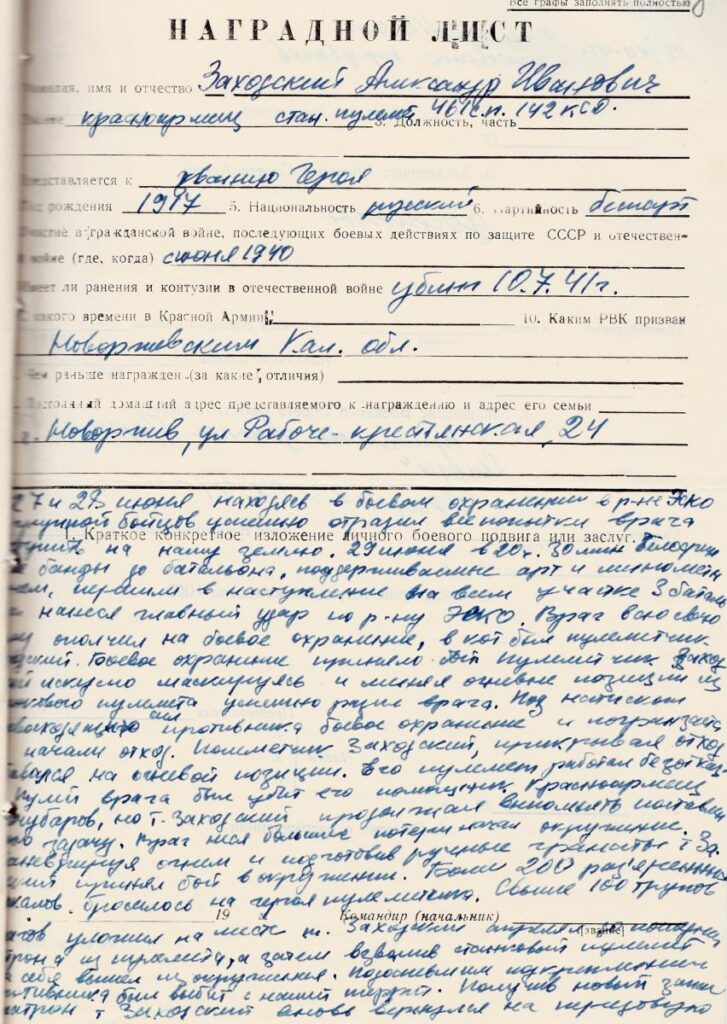 Все графы заполнять полностью
НАГРАДНОЙ ЛИСТ
имя и отчество Заходский Александр Иванович
красноармеец стан. пулемет 461 с.п. 142 к.с.д. 3. Должность, часть
Представляется к званию Героя
Год рождения 1917 5. Национальность русский 6. Партийность беспарт
Участие в гражданской войне, последующих боевых действиях по защите СССР и отечествен-
войне (где, когда) с июня 1940
Имеет ли ранения и контузии в отечественной войне убит 10.7.41 г.
С какого времени в Красной Армии 10. Каким РВК призван
Новоржевским Кал. обл.
Чем раньше награжден (за какие отличия)
Постоянный домашний адрес представляемого к награждению и адрес его семьи
г. Новоржев, ул Рабоче-крестьянская, 24
27 и 28 июня находясь в боевом охранении в р-не Эско
группой бойцов успешно отразил все попытки врага
1. Краткое конкретное изложение личного боевого подвига или заслуг.
на нашу землю. 29 июня в 20 ч. 30 мин Белофин
банды до батальона, поддерживаемые арт и минометн
перешли в наступление на всем участке 3 батал
нанеся главный удар по р-ну Эско. Враг всю свою
ополчил на боевое охранение, в кот был пулеметчик
Боевое охранение приняло бой Пулеметчик Заход
искусно маскируясь и меняя огневые позиции из
пулемета успешно разил врага. Под натиском
сил противника боевое охранение и погранзаста
начали отход. Пулеметчик Заходский, прикрывая отход
на огневой позиции. Его пулемет работал безотказ
Пулей врага был убит его помощник, Красноармеец
но т. Заходский продолжал выполнять поставлен
задачу. Враг неся большие потери начал окружение. т За
огнем и подготовив ручные гранаты
принял бой в окружении. Более 200 разъяренных
бросилось на героя пулеметчика. Свыше 100 трупов
19 г. Командир (начальник)
(звание)
уложил на месте т. Заходский
из пулемета, а затем взвалив станковый пулемет
на себя вышел из окружения. Подоспевшим подкреплением
противника был выбит с нашей террит. Получив новый запас
патрон т Заходский вновь вернулся на передовую